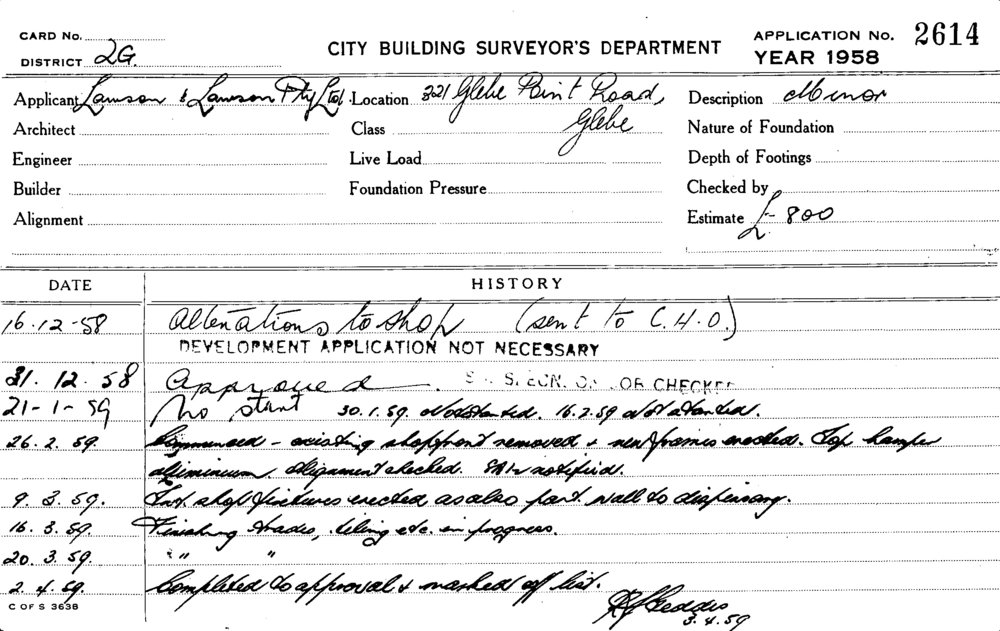 CARD No.
DISTRICT 2G.
CITY BUILDING SURVEYOR'S DEPARTMENT
APPLICATION No. 2614
YEAR 1958
Applicant Lawson & Lawson Pty Ltd.
Location 321 Glebe Point Road,
Glebe
Description Minor
Architect
Class
Nature of Foundation
Engineer
Live Load
Depth of Footings
Builder
Foundation Pressure
Checked by
Alignment
Estimate £- 800
DATE HISTORY
16-12-58 Alterations to shop (sent to C.H.O.)
DEVELOPMENT APPLICATION NOT NECESSARY
31. 12. 58 Approved . CHECKED
21-1-59 No start 30.1.59. Not started. 16.2.59 Not started.
26. 2. 59. Commenced - existing shopfront removed & new frames erected. Top hamper
aluminium. Alignment checked. notified.
9. 3. 59. Int. shop fixtures erected as also part. wall to dispensary.
16. 3. 59. Finishing trades, tiling etc. in progress.
20. 3. 59. " "
2. 4. 59. Completed to approval & marked off list.
Geddis
3.4.59
C OF S 3638